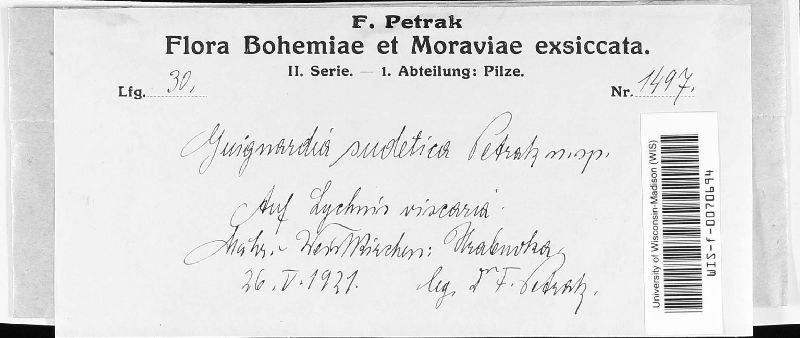 F. Petrak
Flora Bohemiae et Moraviae exsiccata.
II. Serie. — 1. Abteilung: Pilze.
Lfg. 30. Nr. 1497.
Guignardia sudetica Petrak n. sp.
Auf Lychnis viscaria
Mähr.- Weißkirchen: Hrabuvka
26. V. 1921. leg. Dr F. Petrak.
University of Wisconsin-Madison (WIS)
WIS-f-0070694